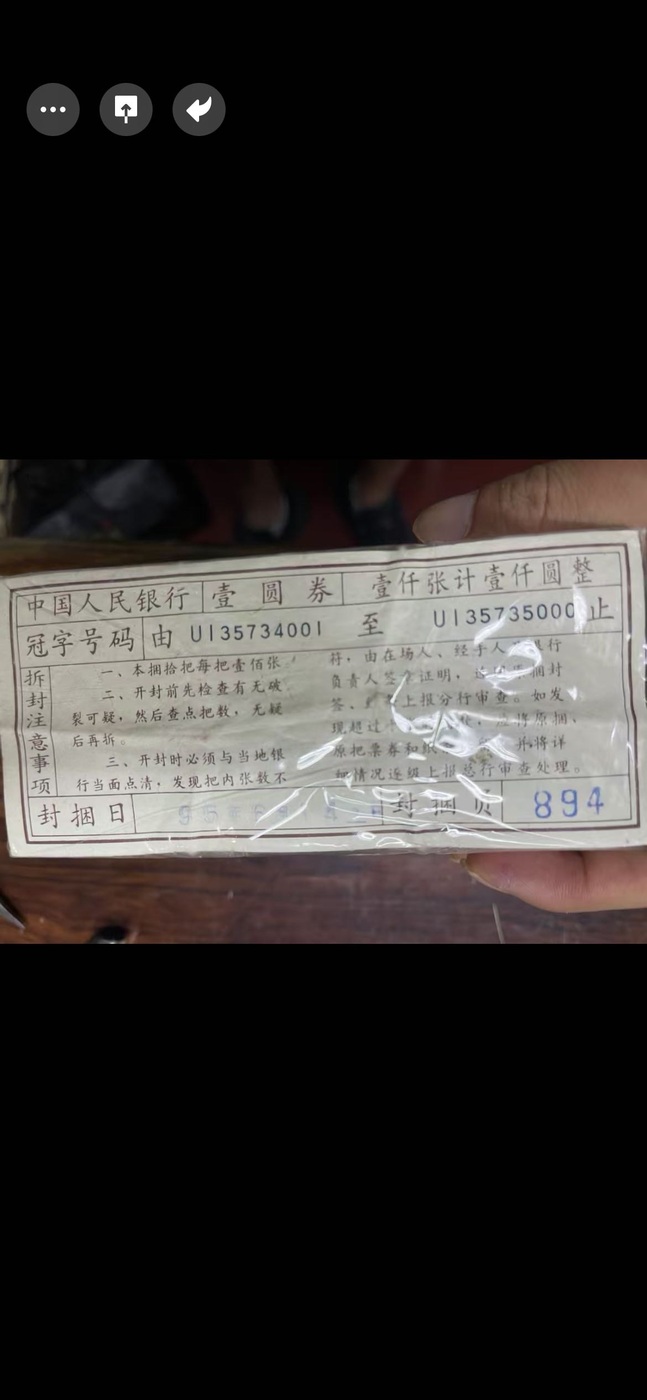 中国人民银行 壹圆券 壹仟张计壹仟圆整
冠字号码 由 UI35734001 至 UI35735000 止
拆封注意事项
一、本捆拾把每把壹佰张
二、开封前先检查有无破
裂可疑，然后查点把数，无疑
后再拆。
三、开封时必须与当地银
行当面点清，发现把内张数不
符，由在场人、经手人 银行
负责人签 证明， 捆封
签、 上报分行审查。如发
现超过 将原捆、
原把票券和 并将详
细情况逐级上报总行审查处理。
封捆日 封捆员 894